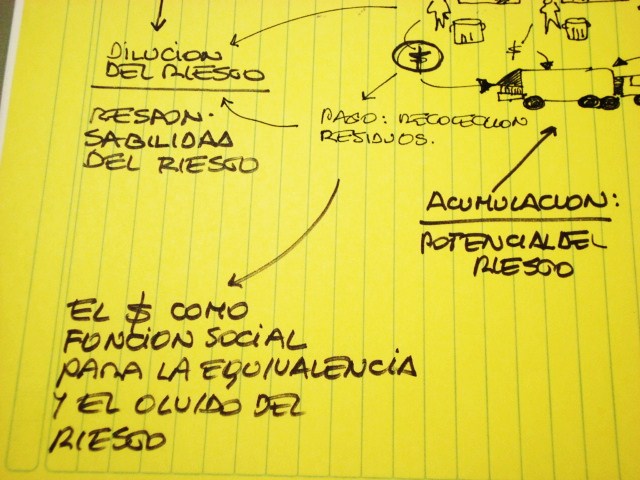 DILUCION
DEL RIESGO
RESPON-
SABILIDAD
DEL RIESGO
$
$
PAGO: RECOLECCION
RESIDUOS.
ACUMULACION:
POTENCIAL DEL
RIESGO
EL $ COMO
FUNCION SOCIAL
PARA LA EQUIVALENCIA
Y EL OLVIDO DEL
RIESGO